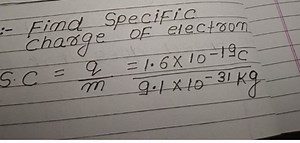 :- Find Specific
charge OF electron
S.C = q/m = 1.6 × 10⁻¹⁹C / 9.1 × 10⁻³¹ kg